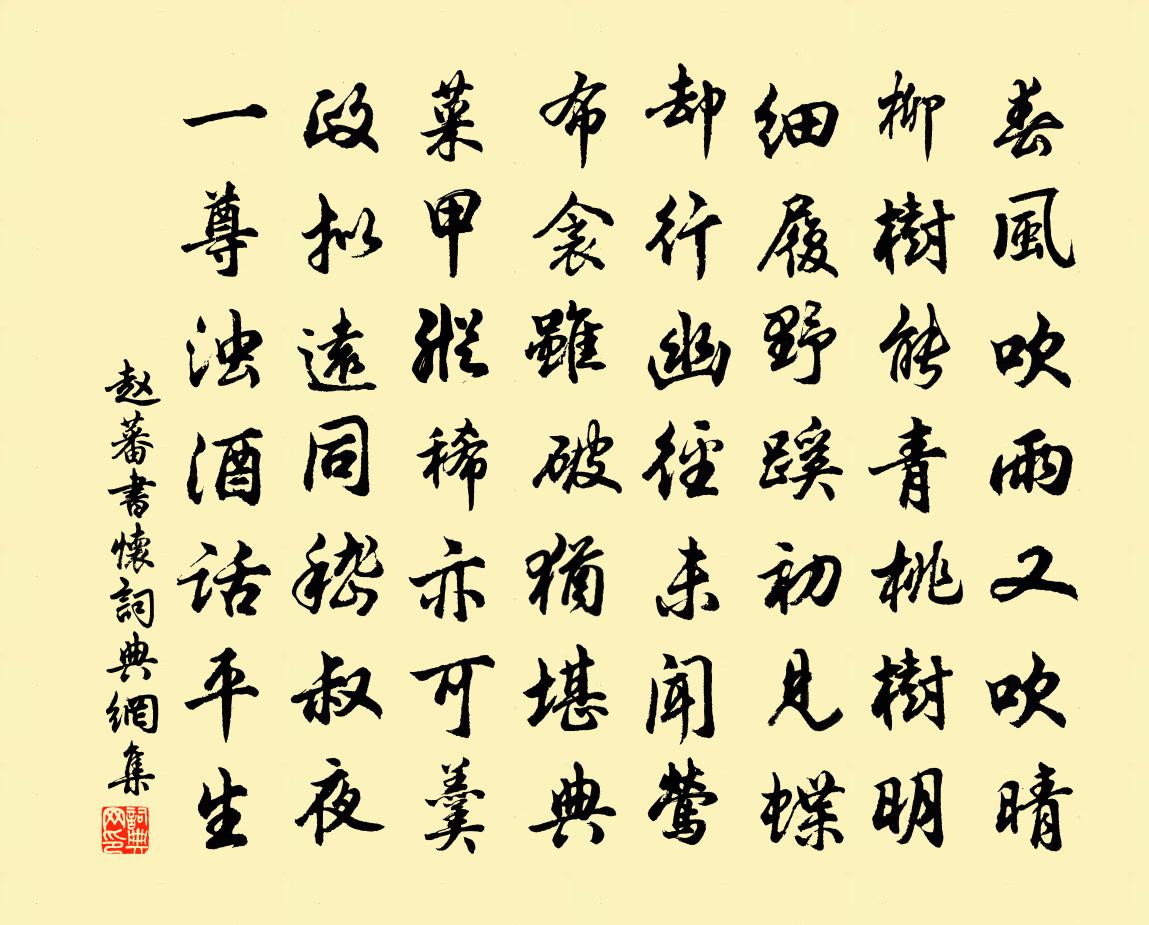 春風吹雨又吹晴
柳樹能青桃樹明
細履野蹊初見蝶
却行幽徑未聞鶯
布衾雖破猶堪典
菜甲縱稀亦可羹
政拟遠同嵇叔夜
一尊浊酒話平生
赵蕃書懷詞典網集
詞典网印